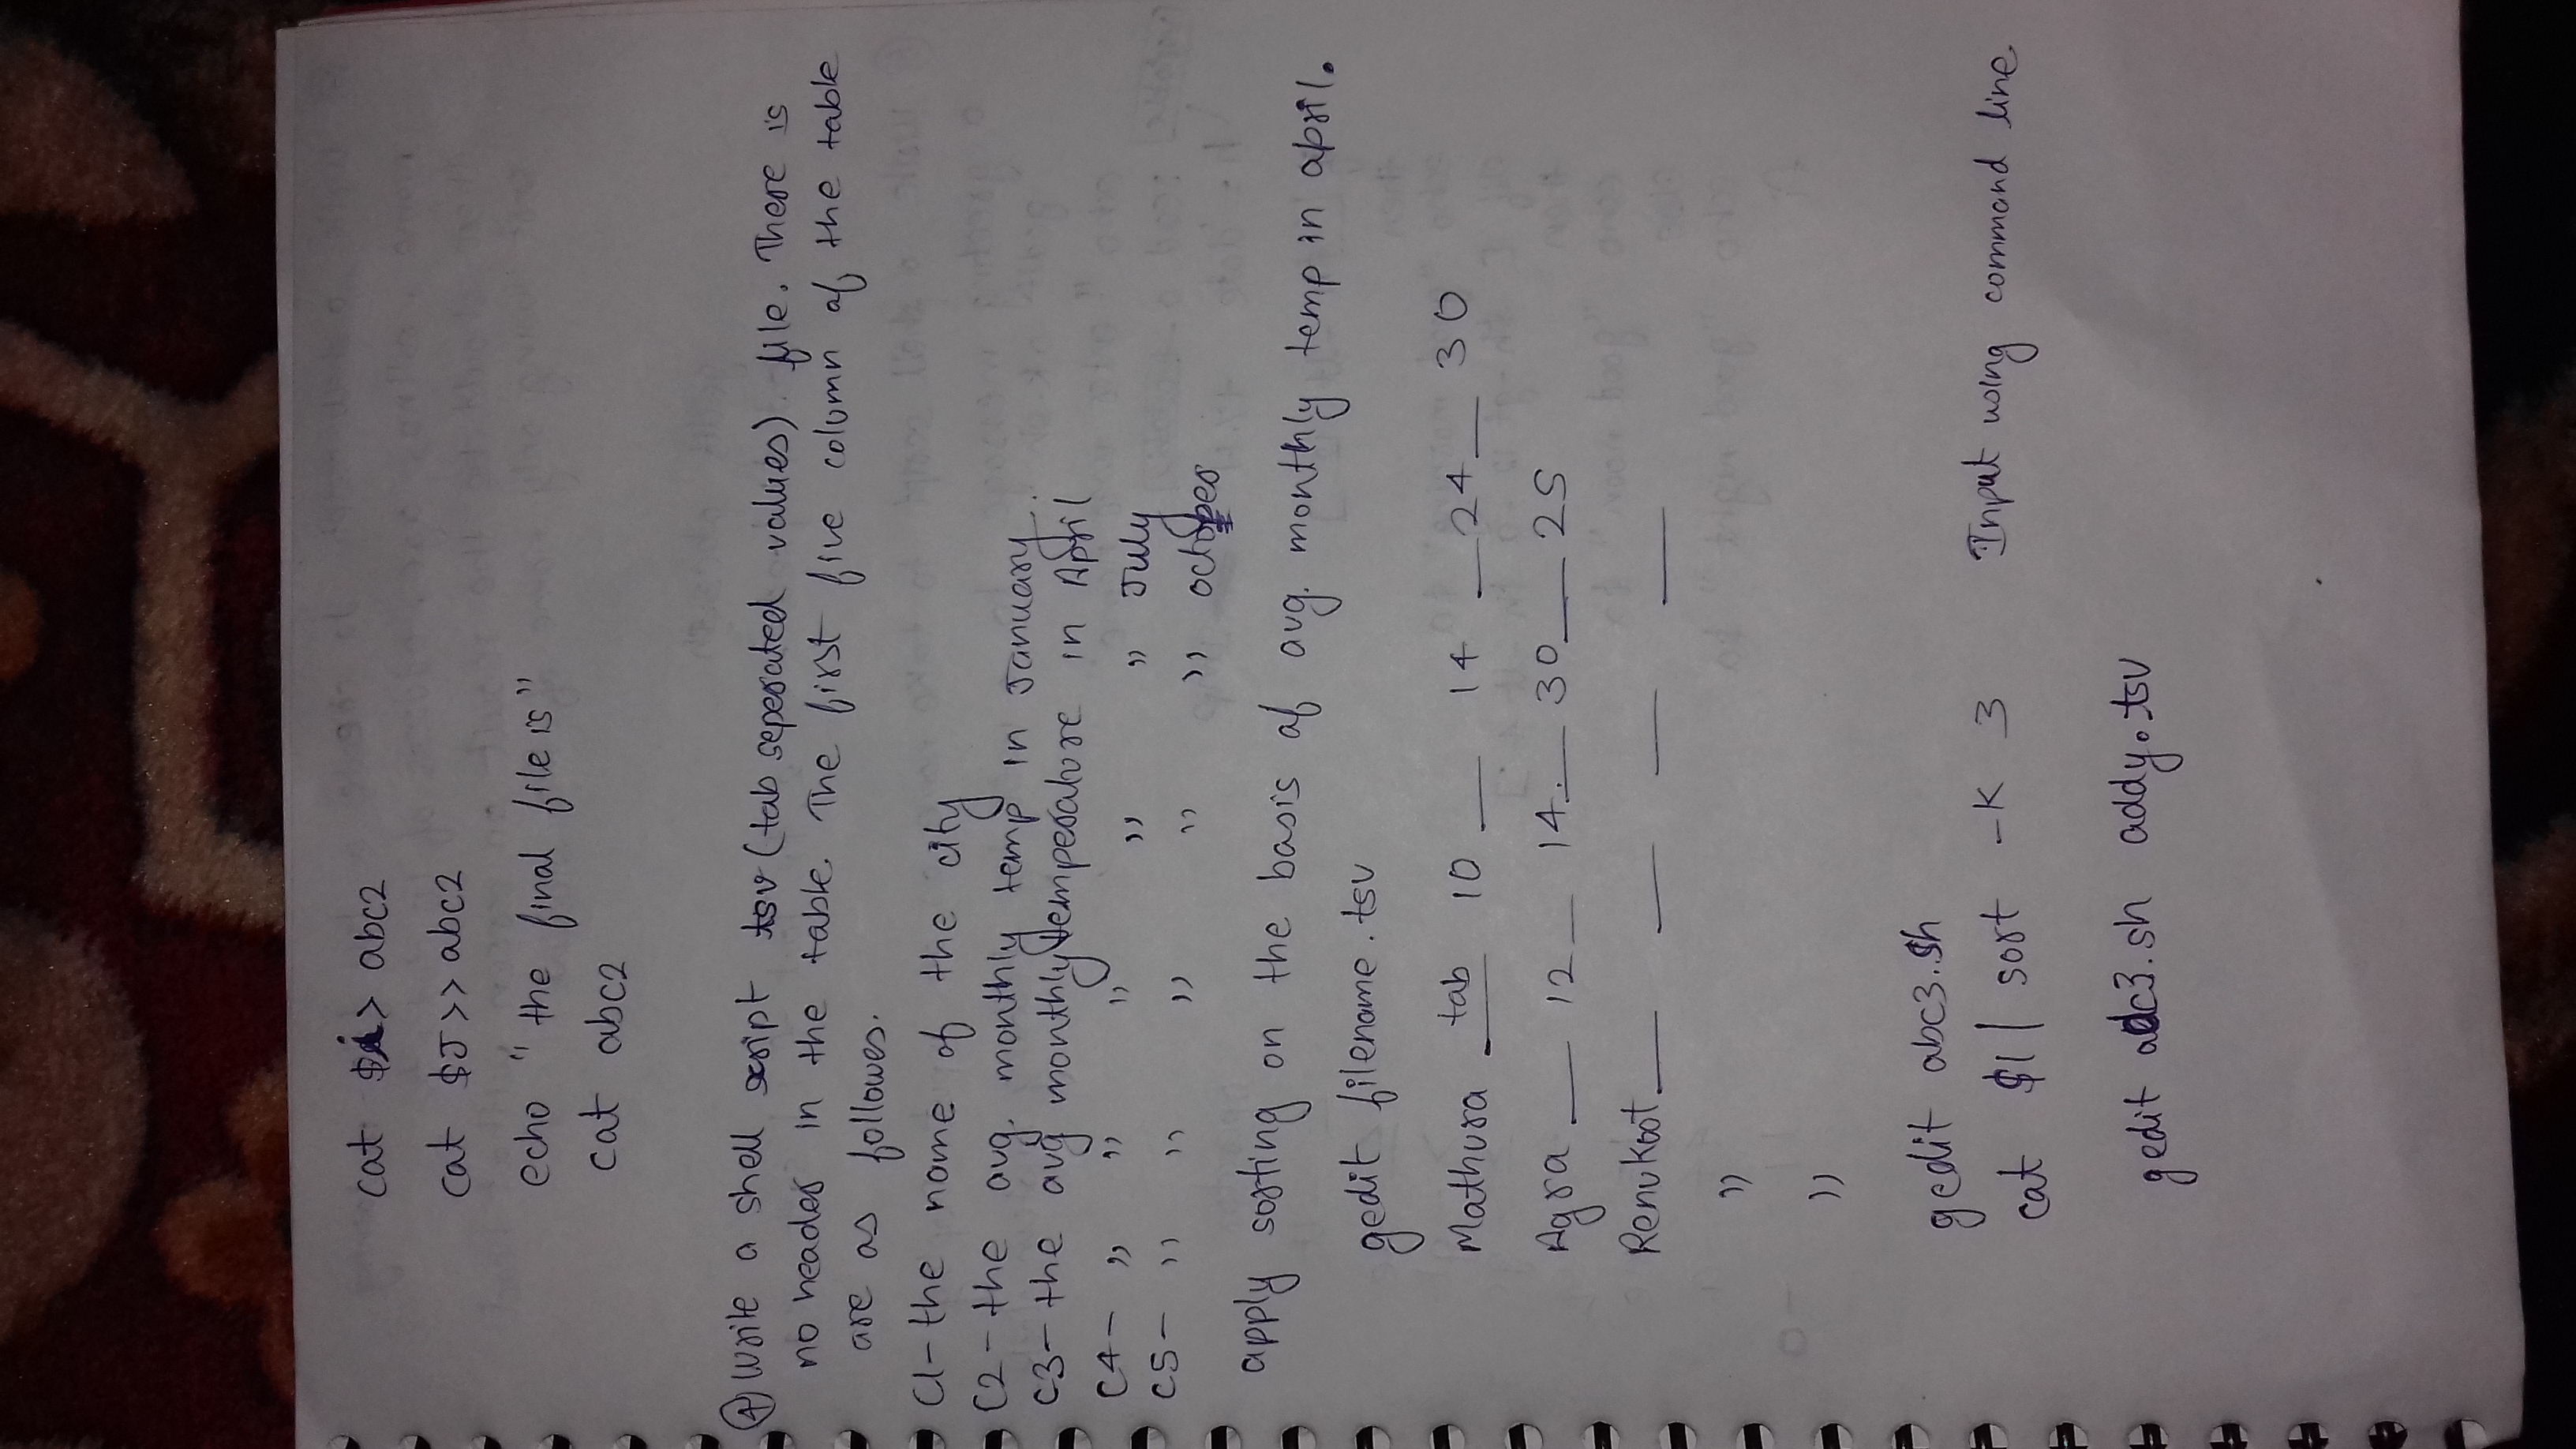 cat $i > abc2
cat $J >> abc2
echo " the final file is"
cat abc2
④ Write a shell script tsv (tab seperated values) file. There is
no header in the table. The first five column of the table
are as followes.
C1 - the name of the city
C2 - the avg. monthly temp in January.
C3 - the avg monthly temperature in April
C4 - " " " " " July
C5 - " " " " " october
apply sorting on the basis of avg. monthly temp in april.
gedit filename.tsv
Mathura __tab__ 10 __ 14 __ 24 __ 30
Agra __ 12 __ 14 __ 30 __ 25
Renukoot __ __ __ __
"
"
gedit abc3.sh
cat $1 | sort -k 3 Input using command line.
gedit adc3.sh addy.tsv